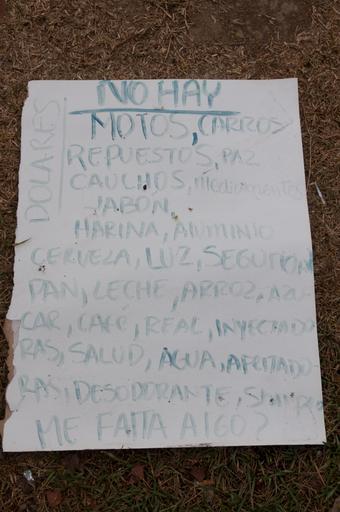 NO HAY
DOLARES
MOTOS, CARROS
REPUESTOS, PAZ
CAUCHOS, medicamentos
JABON,
HARINA, AlUMINIO
CERVEZA, LUZ,
PAN, LECHE, ARROZ, AZU
CAR, CAFÉ, REAL, INYECTADO
RAS, SALUD, AGUA, AFEITADO
RAS, DESODORANTE,
ME FAlTA AlGO?